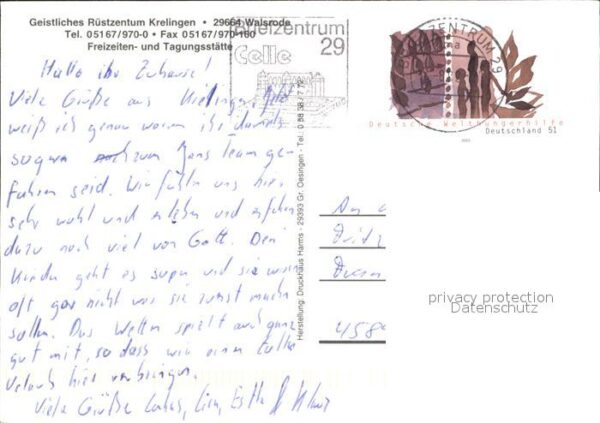 Geistliches Rüstzentrum Krelingen • 29664 Walsrode
Tel. 05167/970-0 • Fax 05167/970-160
Freizeiten- und Tagungsstätte
Briefzentrum
29
Celle
BRIEFZENTRUM 29
Deutsche Welthungerhilfe
Deutschland 51
Hallo ihr Zuhause!
Viele Grüße aus Krelingen, jetzt
weiß ich genau warum ihr damals
sogar zum Jons Team ge-
fahren seid. Wir fühlen uns hier
sehr wohl und erleben und erfahren
dazu noch viel von Gott. Den
Kindern geht es super und sie wissen
oft gar nicht was sie zuerst machen
sollen. Das Wetter spielt auch ganz
gut mit, so dass wir einen tollen
Urlaub hier verbringen.
Viele Grüße Lukas, Lisa, Esth
Herstellung: Druckhaus Harms - 29393 Gr. Oesingen - Tel. 0 58 38 -
An
458
privacy protection
Datenschutz